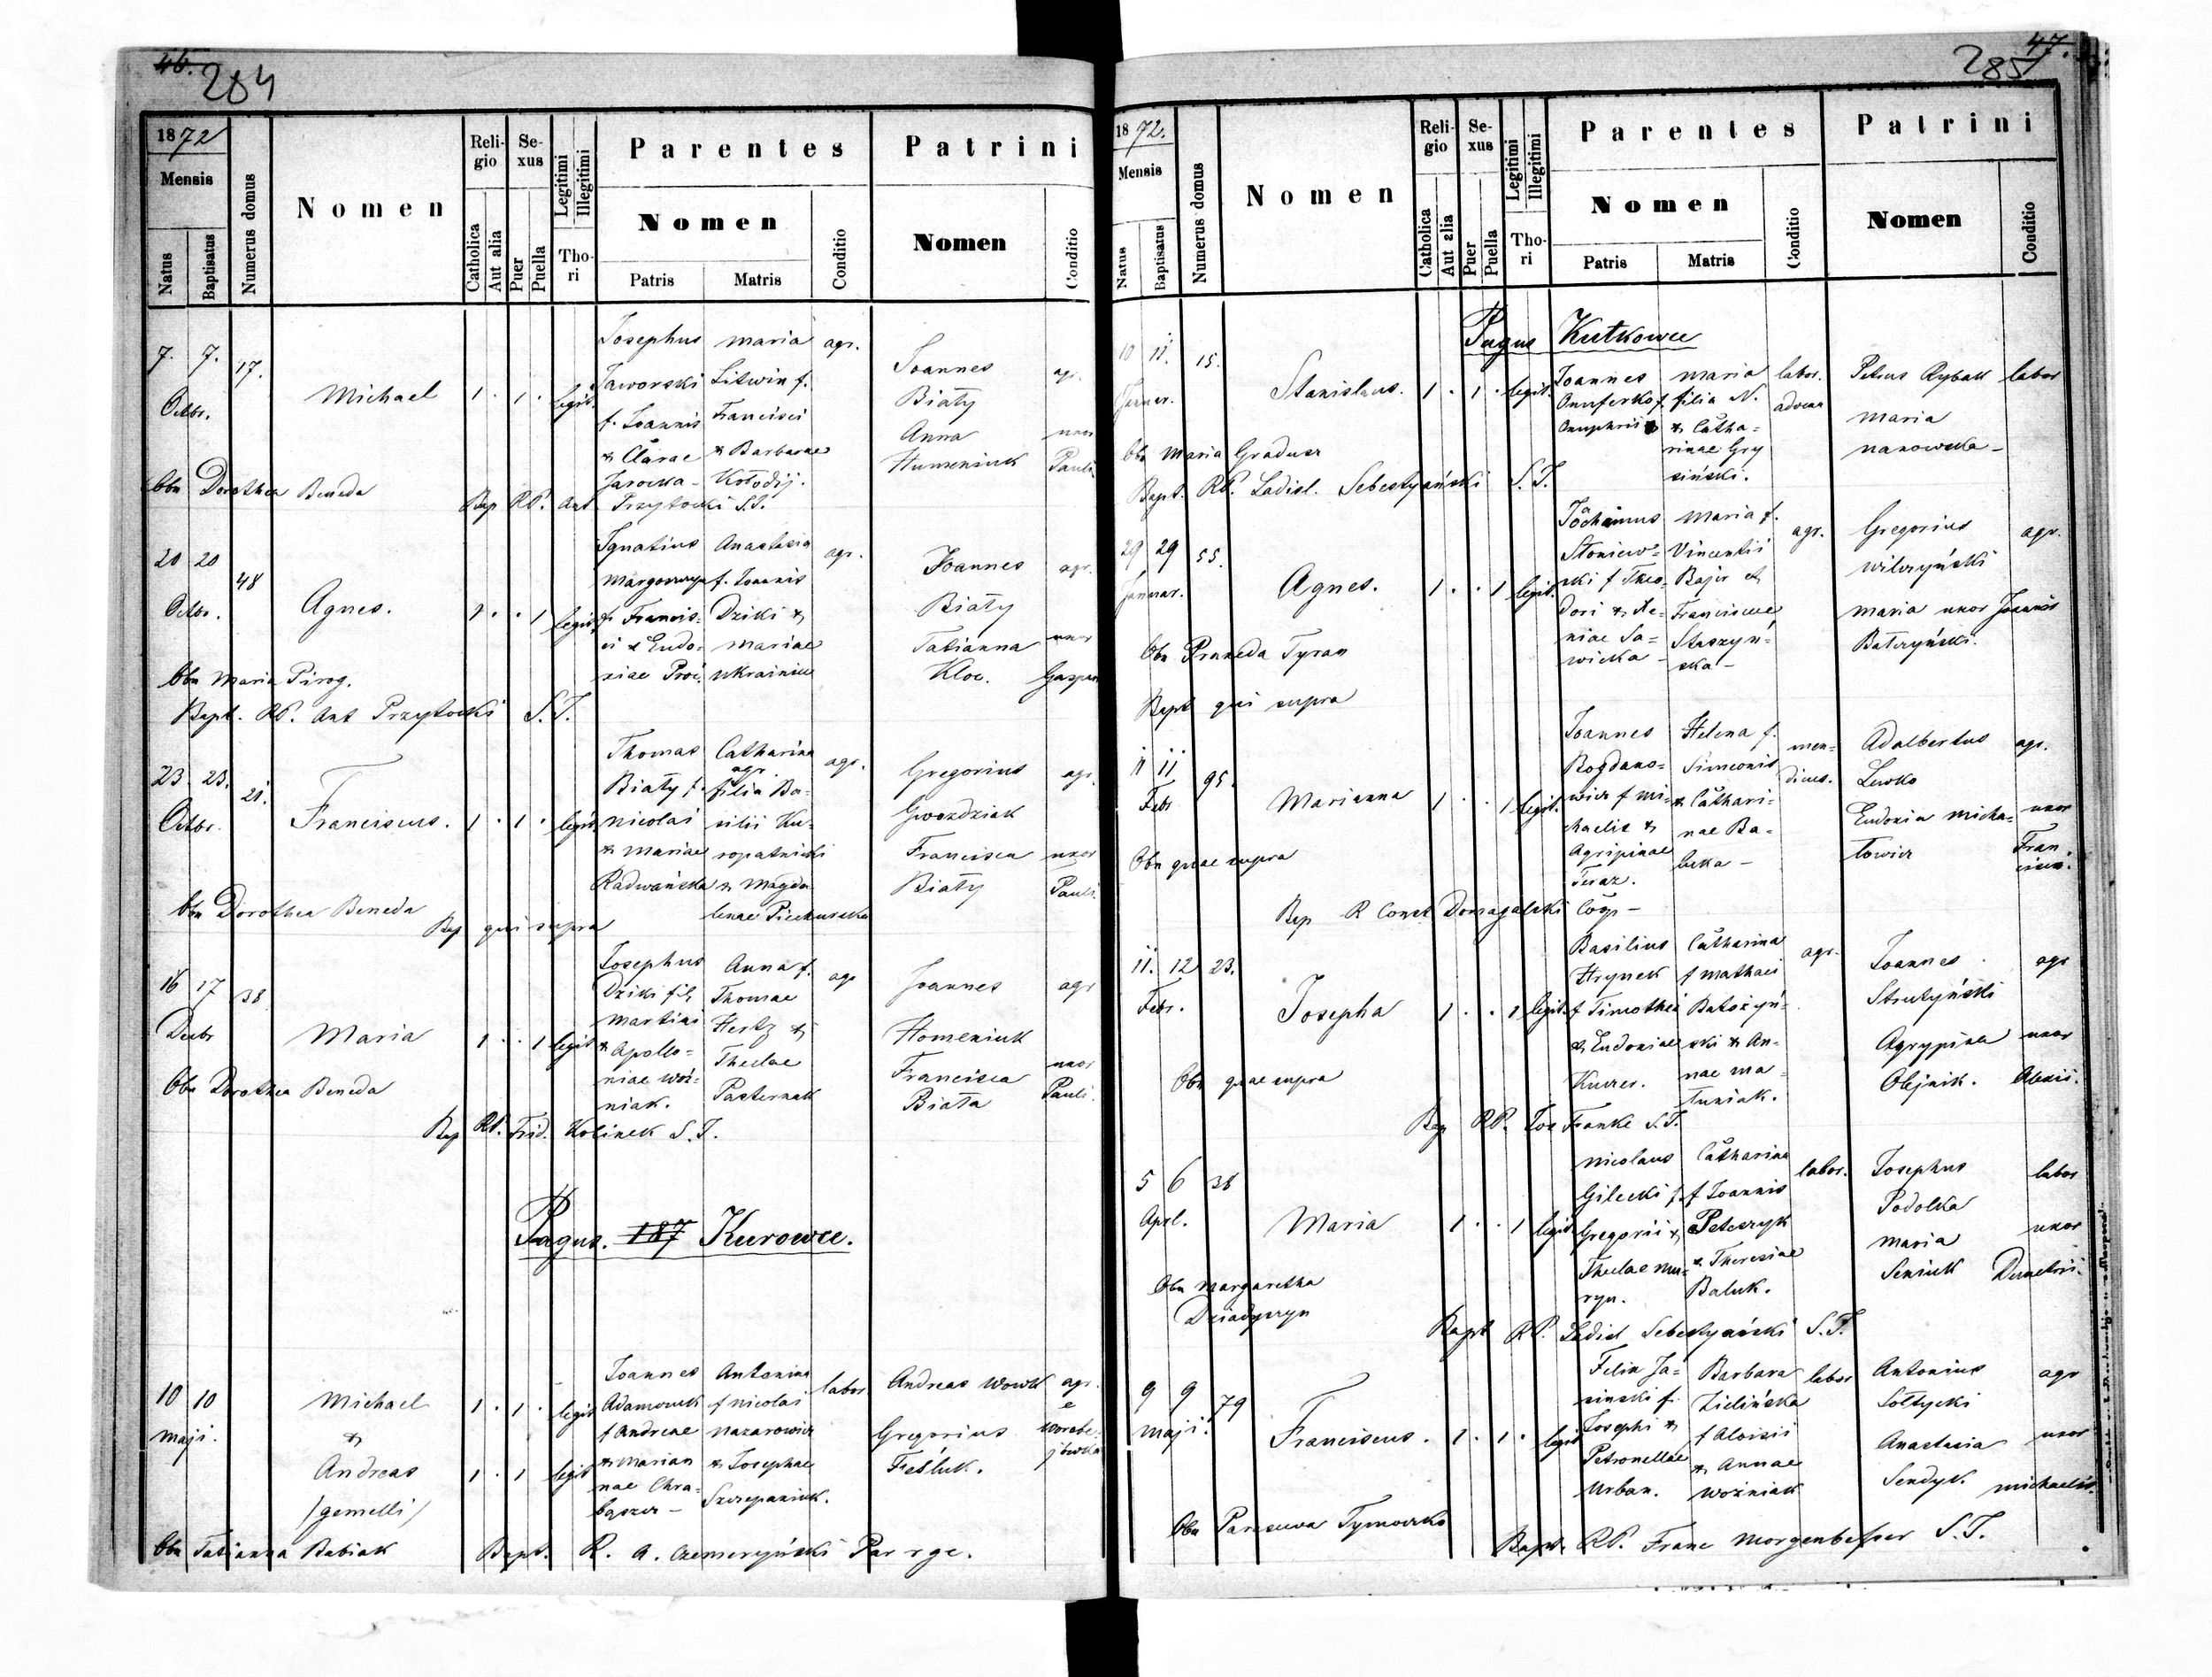 46.
284
1872
Mensis
Natus
Baptisatus
Numerus domus
Nomen
Religio
Catholica
Aut alia
Sexus
Puer
Puella
Legitimi
Illegitimi
Thori
Parentes
Nomen
Patris
Matris
Conditio
Patrini
Nomen
Conditio
7. 7. 17.
Octbr.
Michael
1 . 1 . legit.
Josephus
Jaworski
f. Joannis
& Clarae
Jarocka -
maria
Litwin f.
Francisci
& Barbarae
Kołodij.
agr.
Joannes
Biały
Anna
Humeniuk
agr.
uxor
Pauli
Obn Dorothea Beneda
Bap RP. Ant Przytocki S.J.
20 20 48
Octbr.
Agnes.
1 . . 1 legit.
Ignatius
f. Francis-
ci & Eudo-
xiae Proć.
Anastasia
f. Joannis
Dziki &
mariae
Ukrainiec
agr.
Joannes
Biały
Tatianna
Kloc.
agr.
uxor
Gaspari
Obn Maria Pirog.
Bapt. RP. Ant Przytocki S.J.
23. 23. 21.
Octbr.
Franciscus.
1 . 1 . legit
Thomas
Biały f.
Nicolai
& Mariae
Radwańska
Catharina
agr.
filia Ba-
silii Ku-
ropatnicki
& Magda-
lenae
agr.
Gregorius
Gwozdziak
Francisca
Biały
agr.
uxor
Pauli
Obn Dorothea Beneda
Bap qui supra
16 17 38
Decbr
Maria
1 . . 1 legit
Josephus
Dziki fil.
Martini
& Apollo-
niae Woź-
niak.
Anna f.
Thomae
Hertz &
Theclae
Pasternak
agr
Joannes
Homeniuk
Francisca
Biała
agr
uxor
Pauli.
Obn Dorothea Beneda
Bap RP. Frid. Kolinek S.J.
Pagus. 187 Kurowce.
10 10
Maji.
Michael
&
Andreas
/gemelli/
1 . 1 . legit
1 . 1 legit
Joannes
Adamczuk
f Andreae
& Marian
nae Chra-
bąszcz -
Antonina
f Nicolai
Nazarowicz
& Josephae
Szczepaniuk.
labor
Andreas Wowk
Gregorius
agr.
e
Obn Tatianna Babiak
Bapt. R. A. Czemeryński Par rgc.
47.
285
1872.
Mensis
Natus
Baptisatus
Numerus domus
Nomen
Religio
Catholica
Aut alia
Sexus
Puer
Puella
Legitimi
Illegitimi
Thori
Parentes
Nomen
Patris
Matris
Conditio
Patrini
Nomen
Conditio
Pagus Kutkowce
10 11. 15.
Januar.
Stanislaus.
1 . 1 . legit.
Joannes
Onuferko f.
Onuphrii
maria
filia N.
& Catha-
rinae Gry
siński.
labor.
advena
Petrus Rybak
maria
labor
Obn Maria Gradusz
Bapt. RP. Ladisl. Sebestyański S.J.
29 29 55.
Januar.
Agnes.
1 . . 1 legit.
Joachimus
Stoniew-
ski f Theo-
dori & Xe-
niae Sa-
wicka -
Maria f.
Vincentii
Bajer et
Franciscae
Staszyń-
ska -
agr.
Gregorius
Wilczyński
maria uxor Joannis
Batczyński.
agr.
Obn Praxeda Tyran
Bapt qui supra
11 11 95.
Febr
Marianna
1 . . 1 legit.
Joannes
Bogdano-
wicz f Mi-
chaelis &
Agripinae
Teraz.
Helena f.
Simeonis
& Cathari-
nae Ba-
-
men-
dicus.
Adalbertus
Lewko
Eudoxia Micha-
łowicz
agr.
uxor
Fran-
cisci.
Obn quae supra
Bap R Const Domagalski Coop -
11. 12 23.
Febr.
Josepha
1 . . 1 legit.
Basilius
Hrynek
f Timothei
& Eudoxiae
Catharina
f Mathaei
Batożyń-
ski & An-
nae Ma-
tuniak.
agr.
Joannes
Strutyński
Agrypina
Olejnik.
agr
uxor
Alexii.
Obn quae supra
Bap RP. Jos Franke S.J.
5 6 38
Aprl.
Maria
1 . . 1 legit
Nicolaus
Gilecki f.
Gregorii &
Theclae Mu-
ryn.
Catharina
f Joannis
Petczyk
& Theresiae
Baluk.
labor.
Josephus
Podolka
maria
Seniuk
labor
uxor
Demetrii.
Obn Margaretha
Dziadyczyn
Bapt RP. Ladisl Sebestyański S.J.
9 9 79
Maji.
Franciscus.
1 . 1 . legit
Felix Ja-
sinski f.
Josephi &
Petronellae
Urban.
Barbara
Zielińska
f Aloisii
& Annae
Woźniak
labor
Antonius
Sołtycki
Anastasia
Sendyk.
agr
uxor
Michaelis.
Obn Parascewa Tymoczko
Bapt. RP. Franc Morgenbesser S.J.